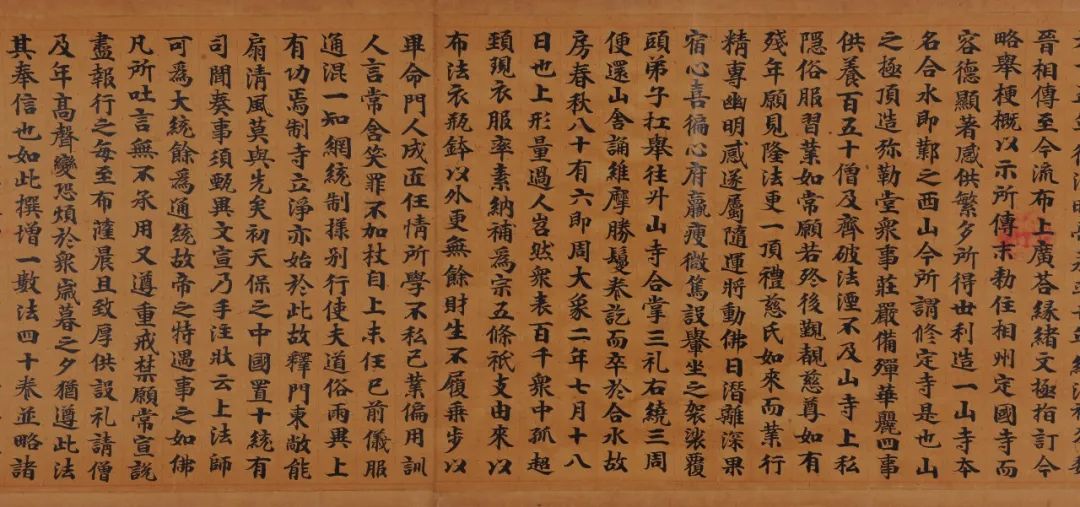 晉相傳至今流布上廣荅緣緒文極指訂今
略舉梗概以示所傳末勑住相州定國寺而
容德顯著感供繁多所得世利造一山寺本
名合水即鄴之西山今所謂修定寺是也山
之極頂造弥勒堂衆事莊嚴備殫華麗四事
供養百五十僧及齊破法湮不及山寺上私
隱俗服習業如常願若終後觀覩慈尊如有
殘年願見隆法更一頂禮慈氏如來而業行
精專幽明感遂屬隨運將動佛日潛離深果
宿心喜徧心府羸瘦微篤設轝坐之袈裟覆
頭弟子扛舉往升山寺合掌三礼右繞三周
便還山舍誦維摩勝鬘卷訖而卒於合水故
房春秋八十有六即周大象二年七月十八
日也上形量過人岧然衆表百千衆中孤超
頸現衣服率素納補爲宗五條祇支由來以
布法衣瓶鉢以外更無餘財生不履乘步以
畢命門人成匠任情所學不私己業偏用訓
人言常含笑罪不加杖自上未任已前儀服
通混一知網統制樣别行使夫道俗兩異上
有功焉制寺立淨亦始於此故釋門東敞能
扇清風莫與先矣初天保之中國置十統有
司聞奏事須甄異文宣乃手注狀云上法師
可爲大統餘爲通統故帝之特遇事之如佛
凡所吐言無不承用又遵重戒禁願常宣説
盡報行之每至布薩晨旦致厚供設礼請僧
及年髙聲變恐煩於衆嵗暮之夕猶遵此法
其奉信也如此撰增一數法四十卷並略諸